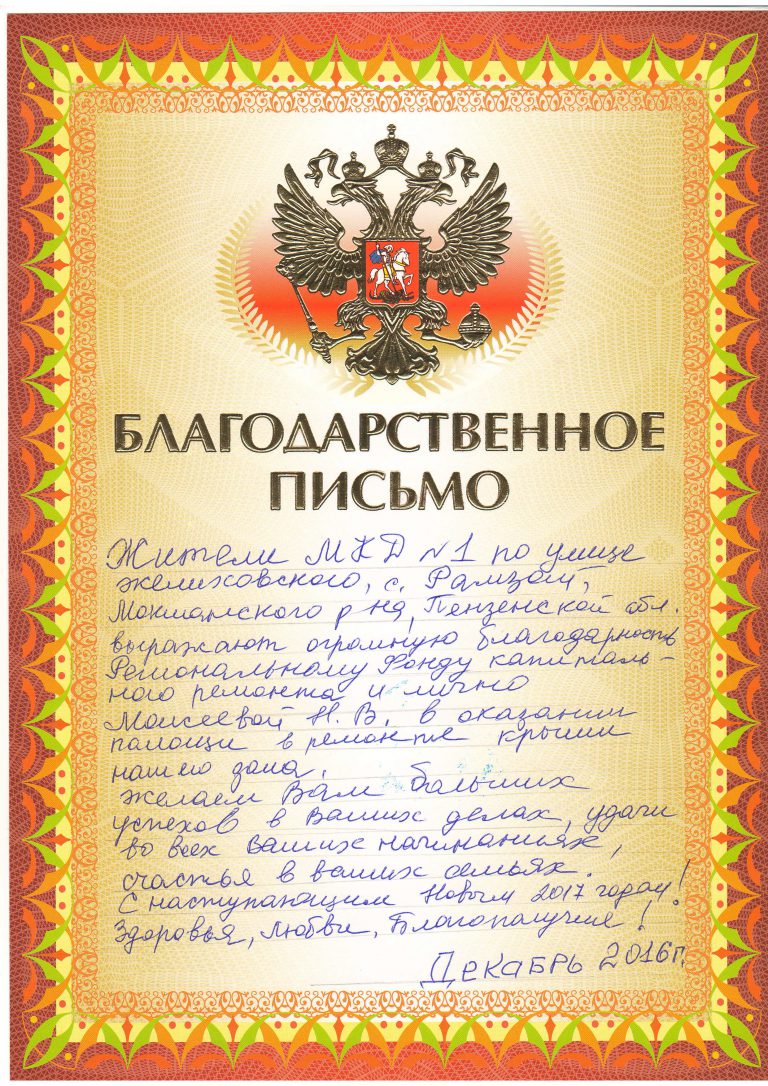 БЛАГОДАРСТВЕННОЕ
ПИСЬМО
Жители МКД №1 по улице
Желиховского, с. Рамзай,
Мокшанского р-на, Пензенской обл.
выражают огромную благодарность
Региональному Фонду капиталь-
ного ремонта и лично
Моисеевой Н. В. в оказании
помощи в ремонте крыши
нашего дома.
Желаем Вам больших
успехов в Ваших делах, удачи
во всех Ваших начинаниях,
счастья в ваших семьях.
С наступающим Новым 2017 годом!
Здоровья, Любви, Благополучие!
Декабрь 2016г.